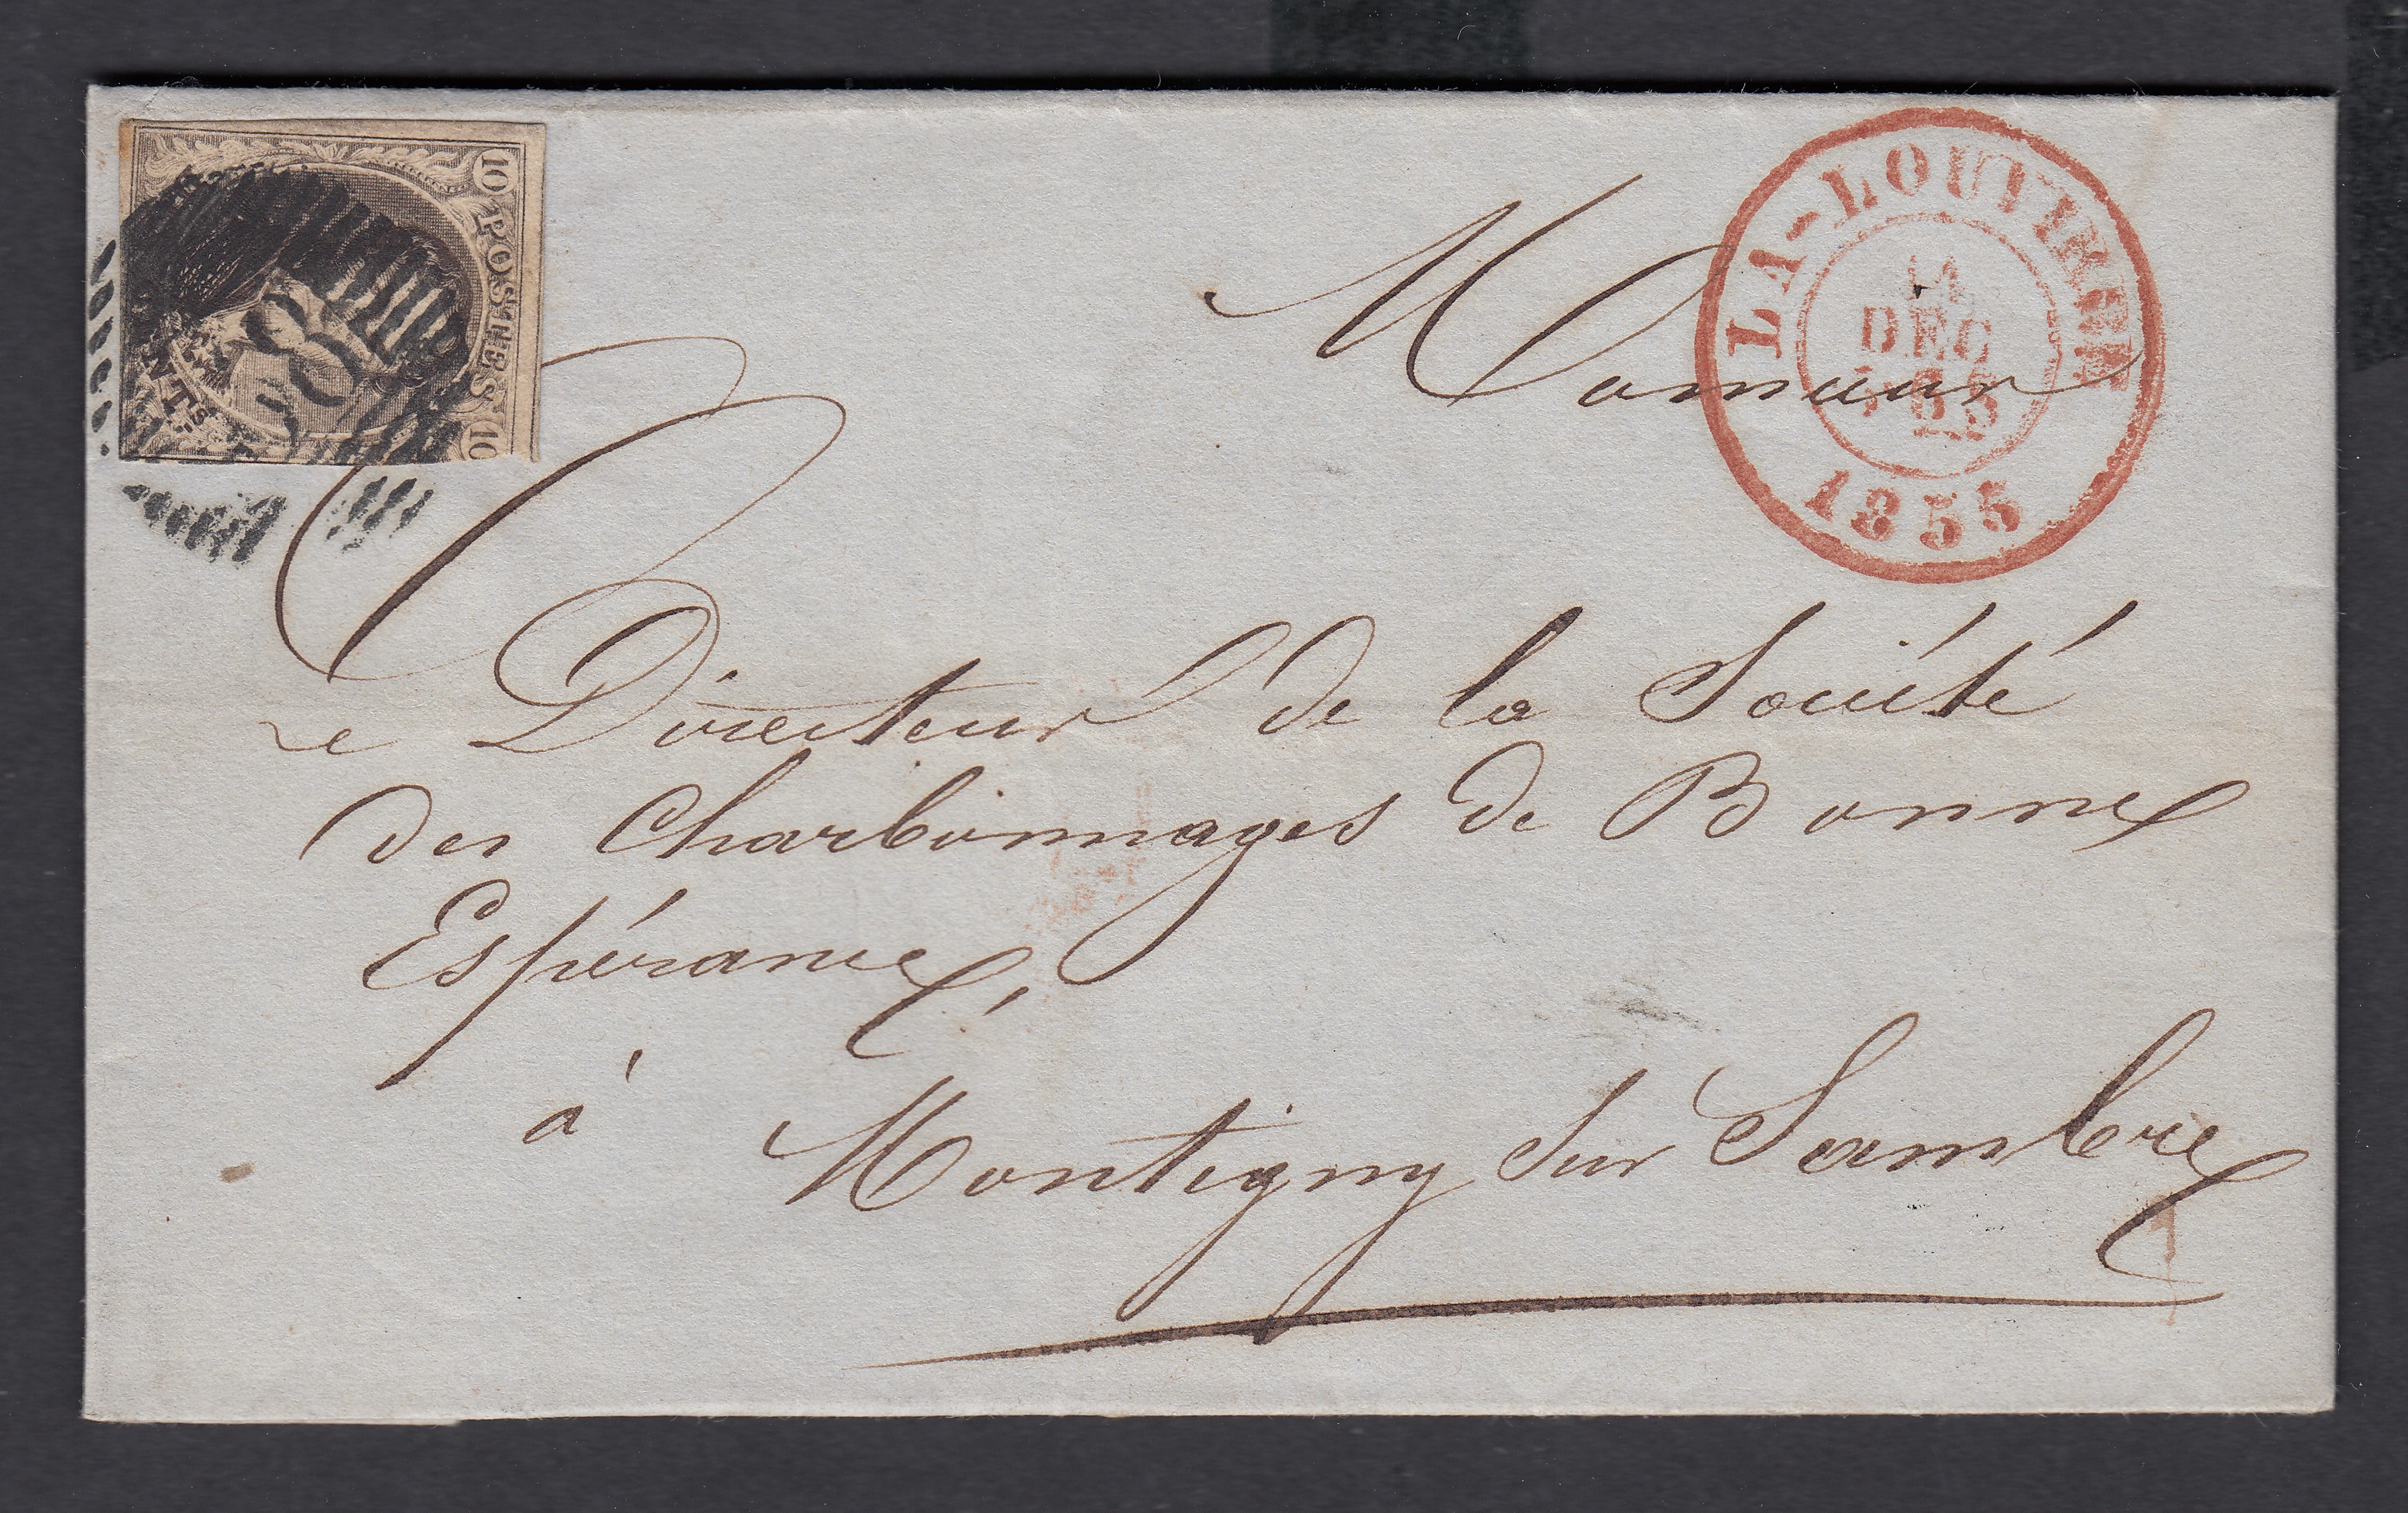 10 POSTES 10
NTS
LA-LOUVIERE
14
DEC
1855
Monsieur
Le Directeur de la Société
des Charbonnages de Bonne
Espérance,
à Montigny sur Sambre